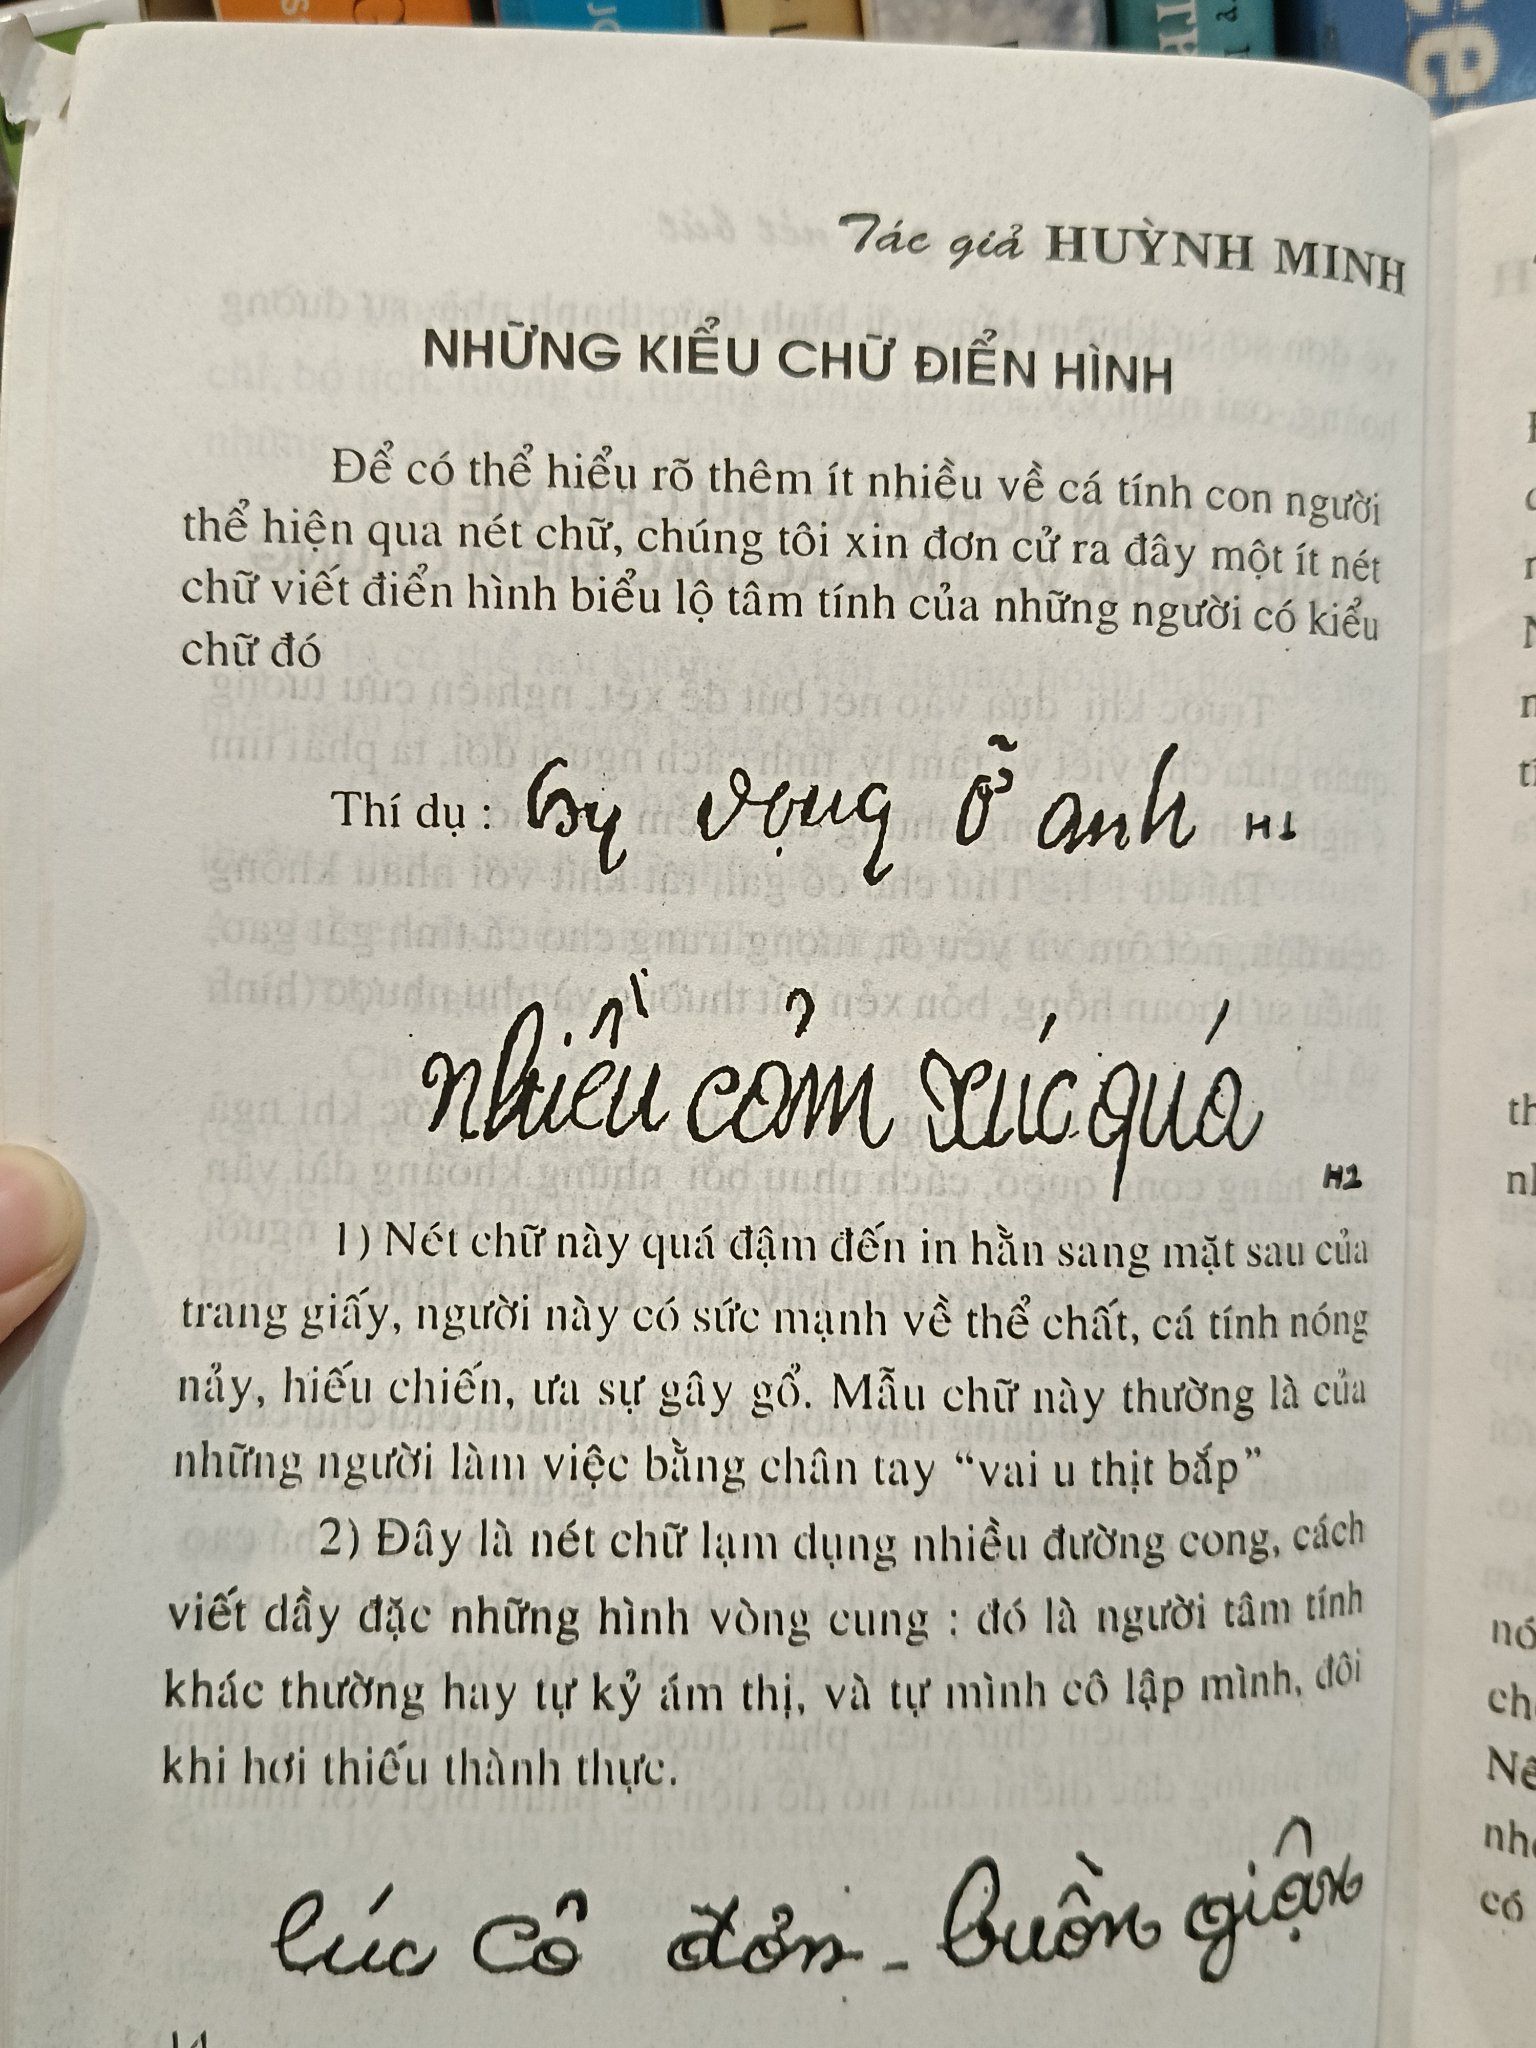 Tác giả HUỲNH MINH
NHỮNG KIỂU CHỮ ĐIỂN HÌNH
Để có thể hiểu rõ thêm ít nhiều về cá tính con người
thể hiện qua nét chữ, chúng tôi xin đơn cử ra đây một ít nét
chữ viết điển hình biểu lộ tâm tính của những người có kiểu
chữ đó
Thí dụ : hy vọng ở anh H1
nhiều cảm xúc quá
H2
1) Nét chữ này quá đậm đến in hằn sang mặt sau của
trang giấy, người này có sức mạnh về thể chất, cá tính nóng
nảy, hiếu chiến, ưa sự gây gổ. Mẫu chữ này thường là của
những người làm việc bằng chân tay “vai u thịt bắp”
2) Đây là nét chữ lạm dụng nhiều đường cong, cách
viết dầy đặc những hình vòng cung : đó là người tâm tính
khác thường hay tự kỷ ám thị, và tự mình cô lập mình, đôi
khi hơi thiếu thành thực.
lúc cô đơn - buồn giận